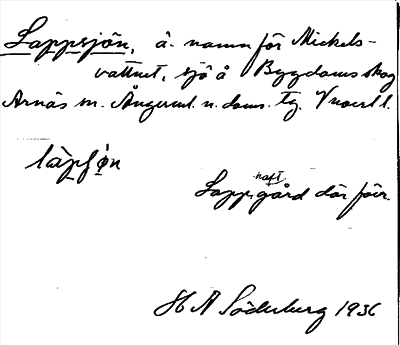 Lappsjön, ä. namn för Mickels-
vattnet, sjö å Bygdoms skog
Arnäs sn. Ångerml. n. doms. tg.
làpʃøn
haft
Lapp gård där förr.
H A Söderberg 1936